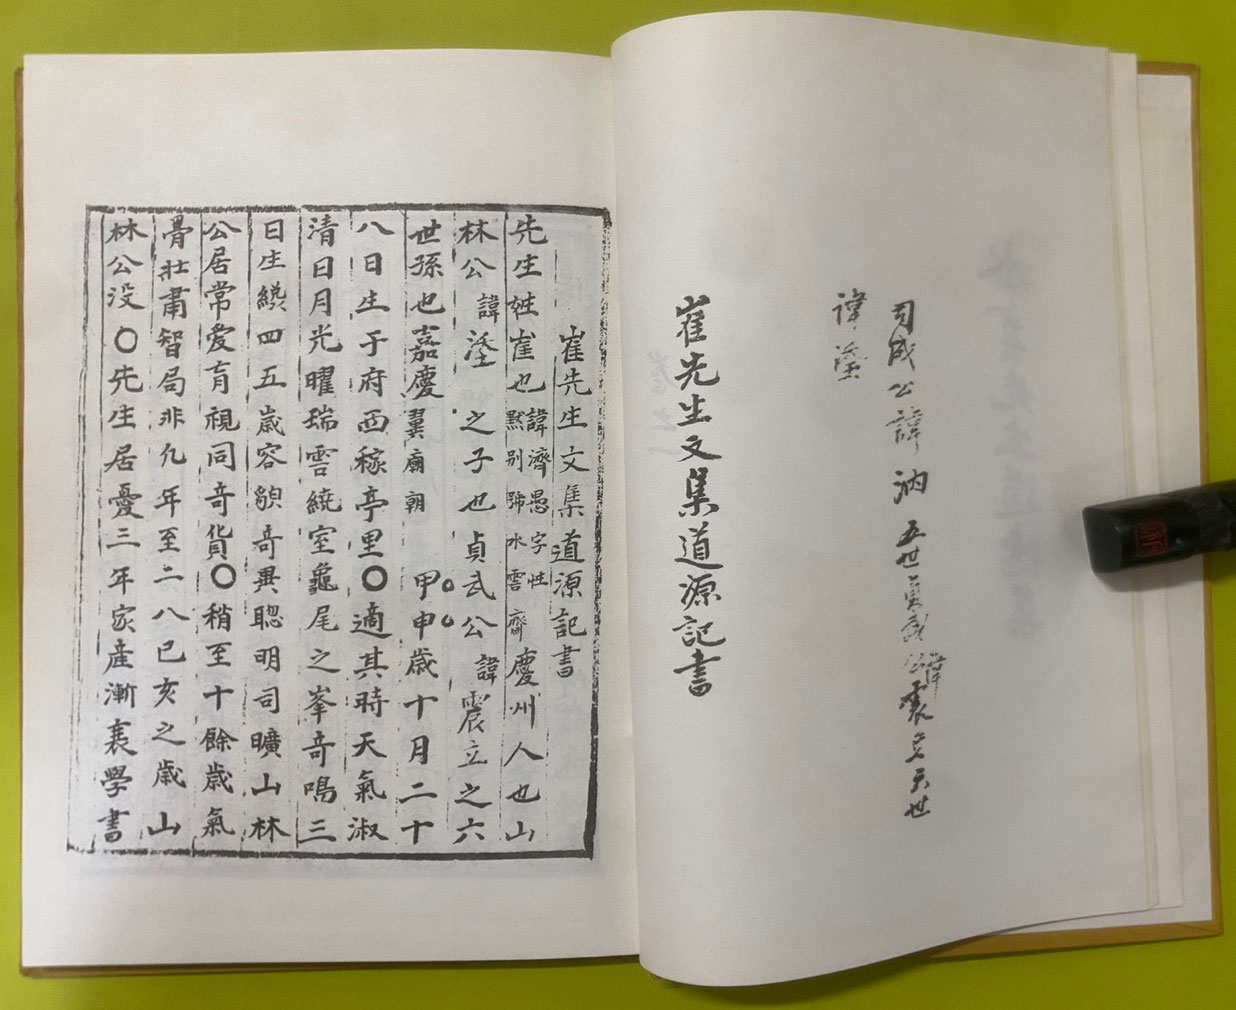 司成公諱汭五世貞武公諱震立六世
諱鋈
崔先生文集道源記書
崔先生文集道源記書
先生姓崔也諱濟愚字性默别號水雲齋慶州人也山
林公諱鋈之子也貞武公諱震立之六
世孫也嘉慶翼廟朝甲申歲十月二十
八日生于府西稼亭里〇適其時天氣淑
清日月光曜瑞雲繞室龜尾之峯奇鳴三
日生纔四五歲容貌奇異聰明司曠山林
公居常愛育視同奇貨〇稍至十餘歲氣
骨壯肅智局非凡年至二八已亥之歲山
林公没〇先生居憂三年家産漸衰學書